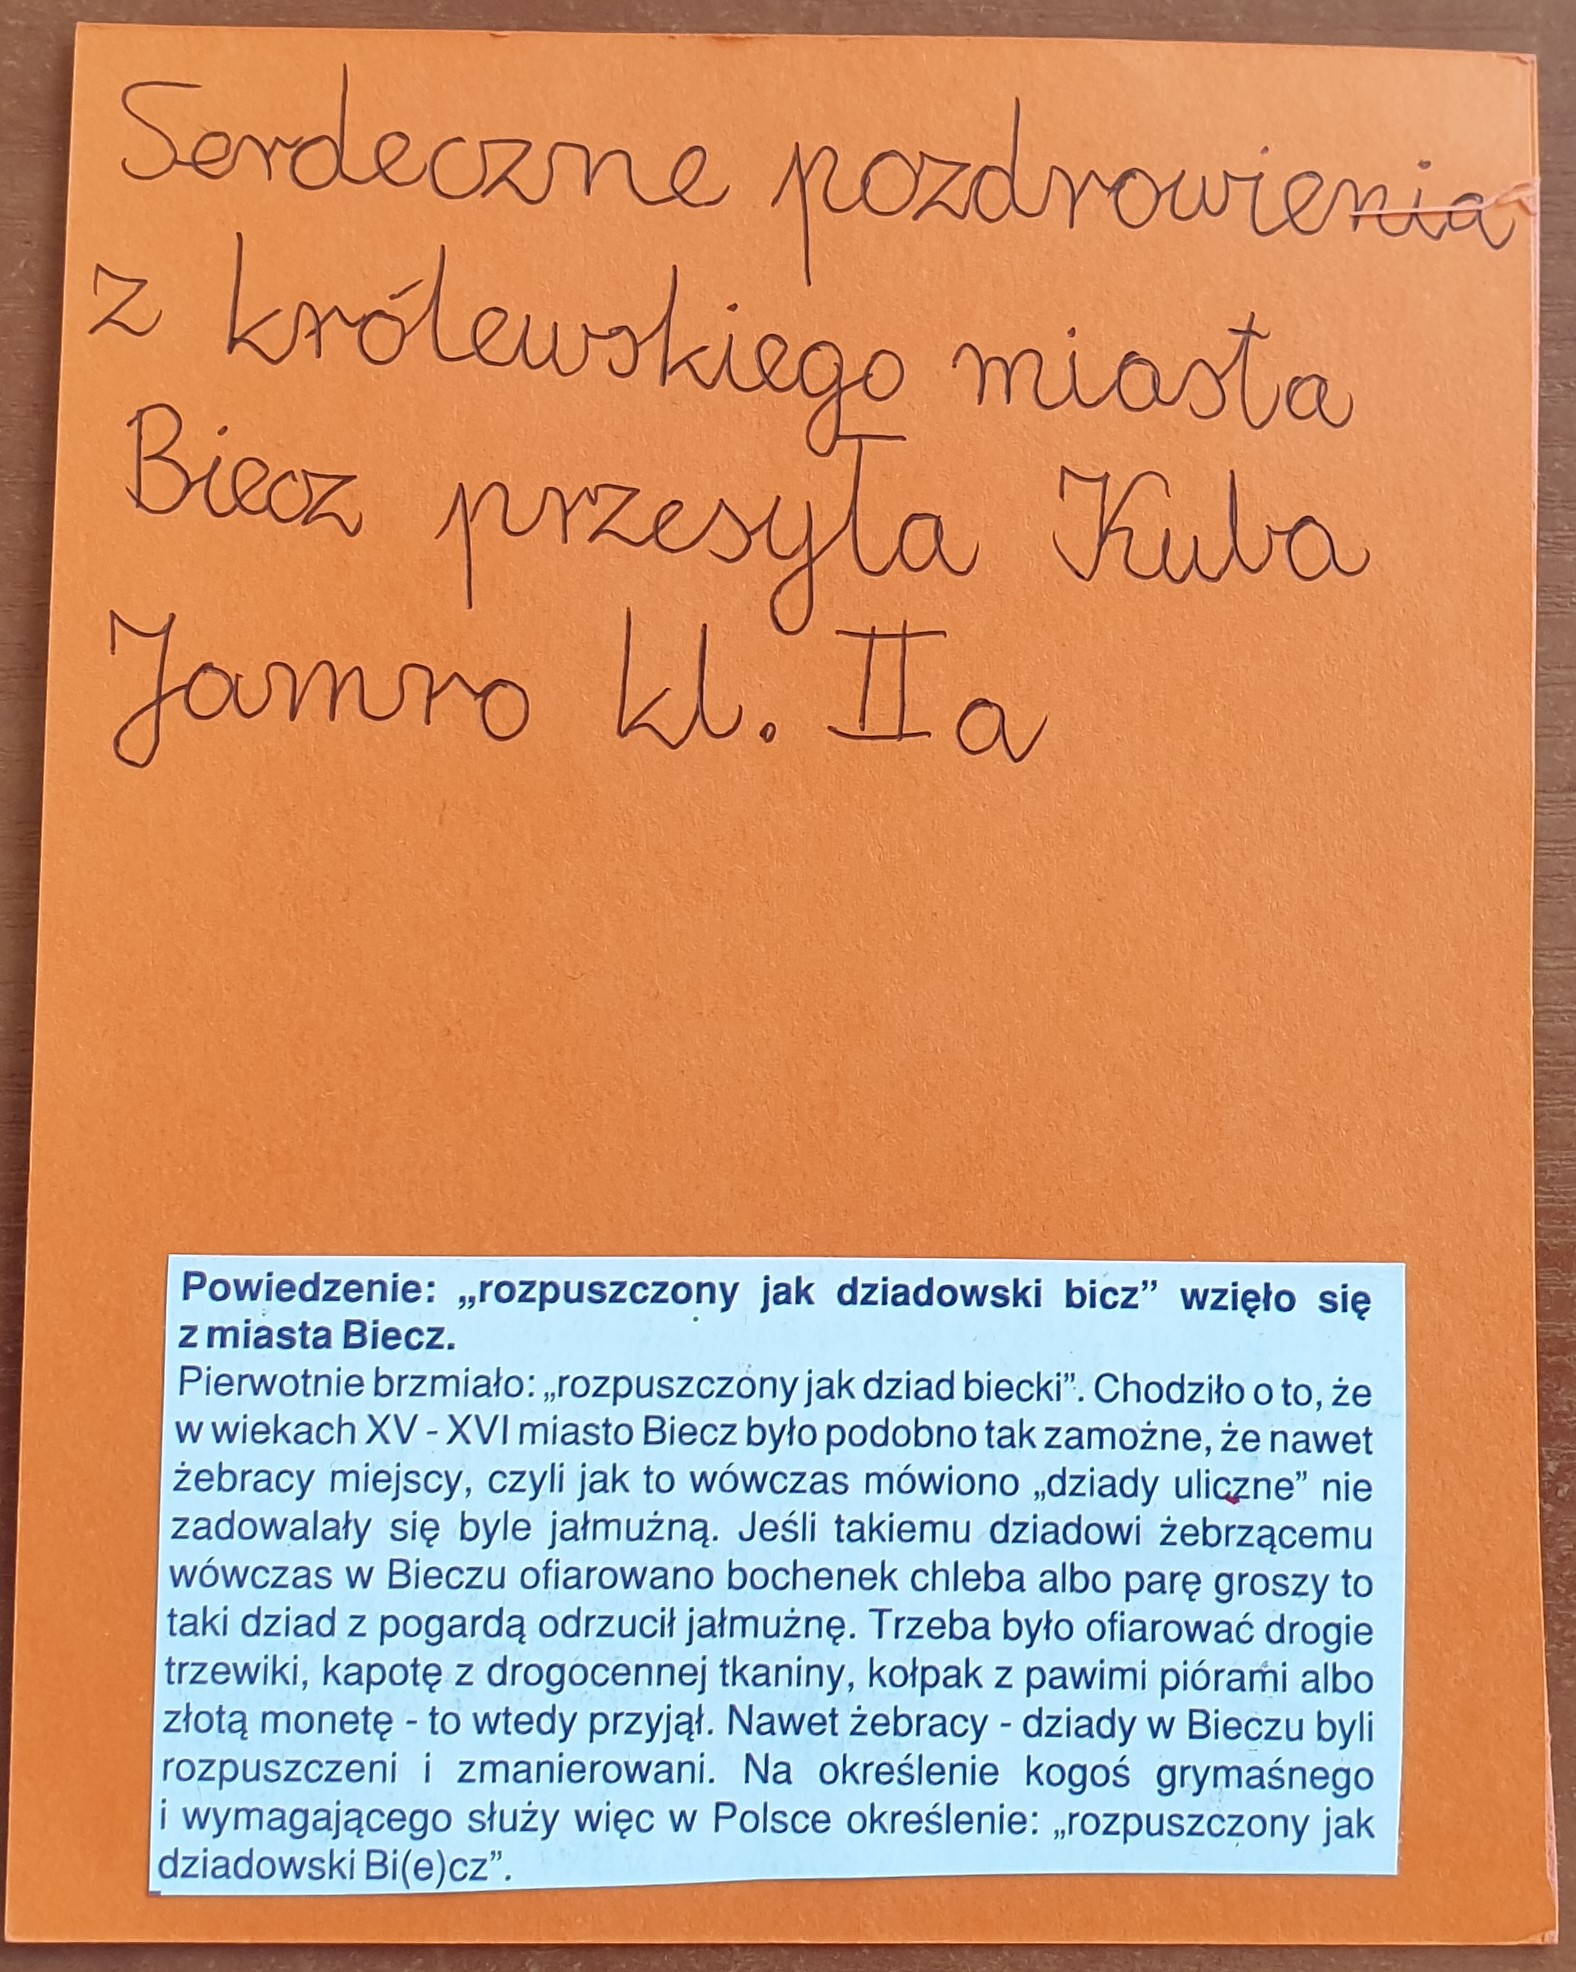 Serdeczne pozdrowienia
z królewskiego miasta
Biecz przesyła Kuba
Jamro kl. II a
Powiedzenie: „rozpuszczony jak dziadowski bicz” wzięło się
z miasta Biecz.
Pierwotnie brzmiało: „rozpuszczony jak dziad biecki”. Chodziło o to, że
w wiekach XV - XVI miasto Biecz było podobno tak zamożne, że nawet
żebracy miejscy, czyli jak to wówczas mówiono „dziady uliczne” nie
zadowalały się byle jałmużną. Jeśli takiemu dziadowi żebrzącemu
wówczas w Bieczu ofiarowano bochenek chleba albo parę groszy to
taki dziad z pogardą odrzucił jałmużnę. Trzeba było ofiarować drogie
trzewiki, kapotę z drogocennej tkaniny, kołpak z pawimi piórami albo
złotą monetę - to wtedy przyjął. Nawet żebracy - dziady w Bieczu byli
rozpuszczeni i zmanierowani. Na określenie kogoś grymaśnego
i wymagającego służy więc w Polsce określenie: „rozpuszczony jak
dziadowski Bi(e)cz”.